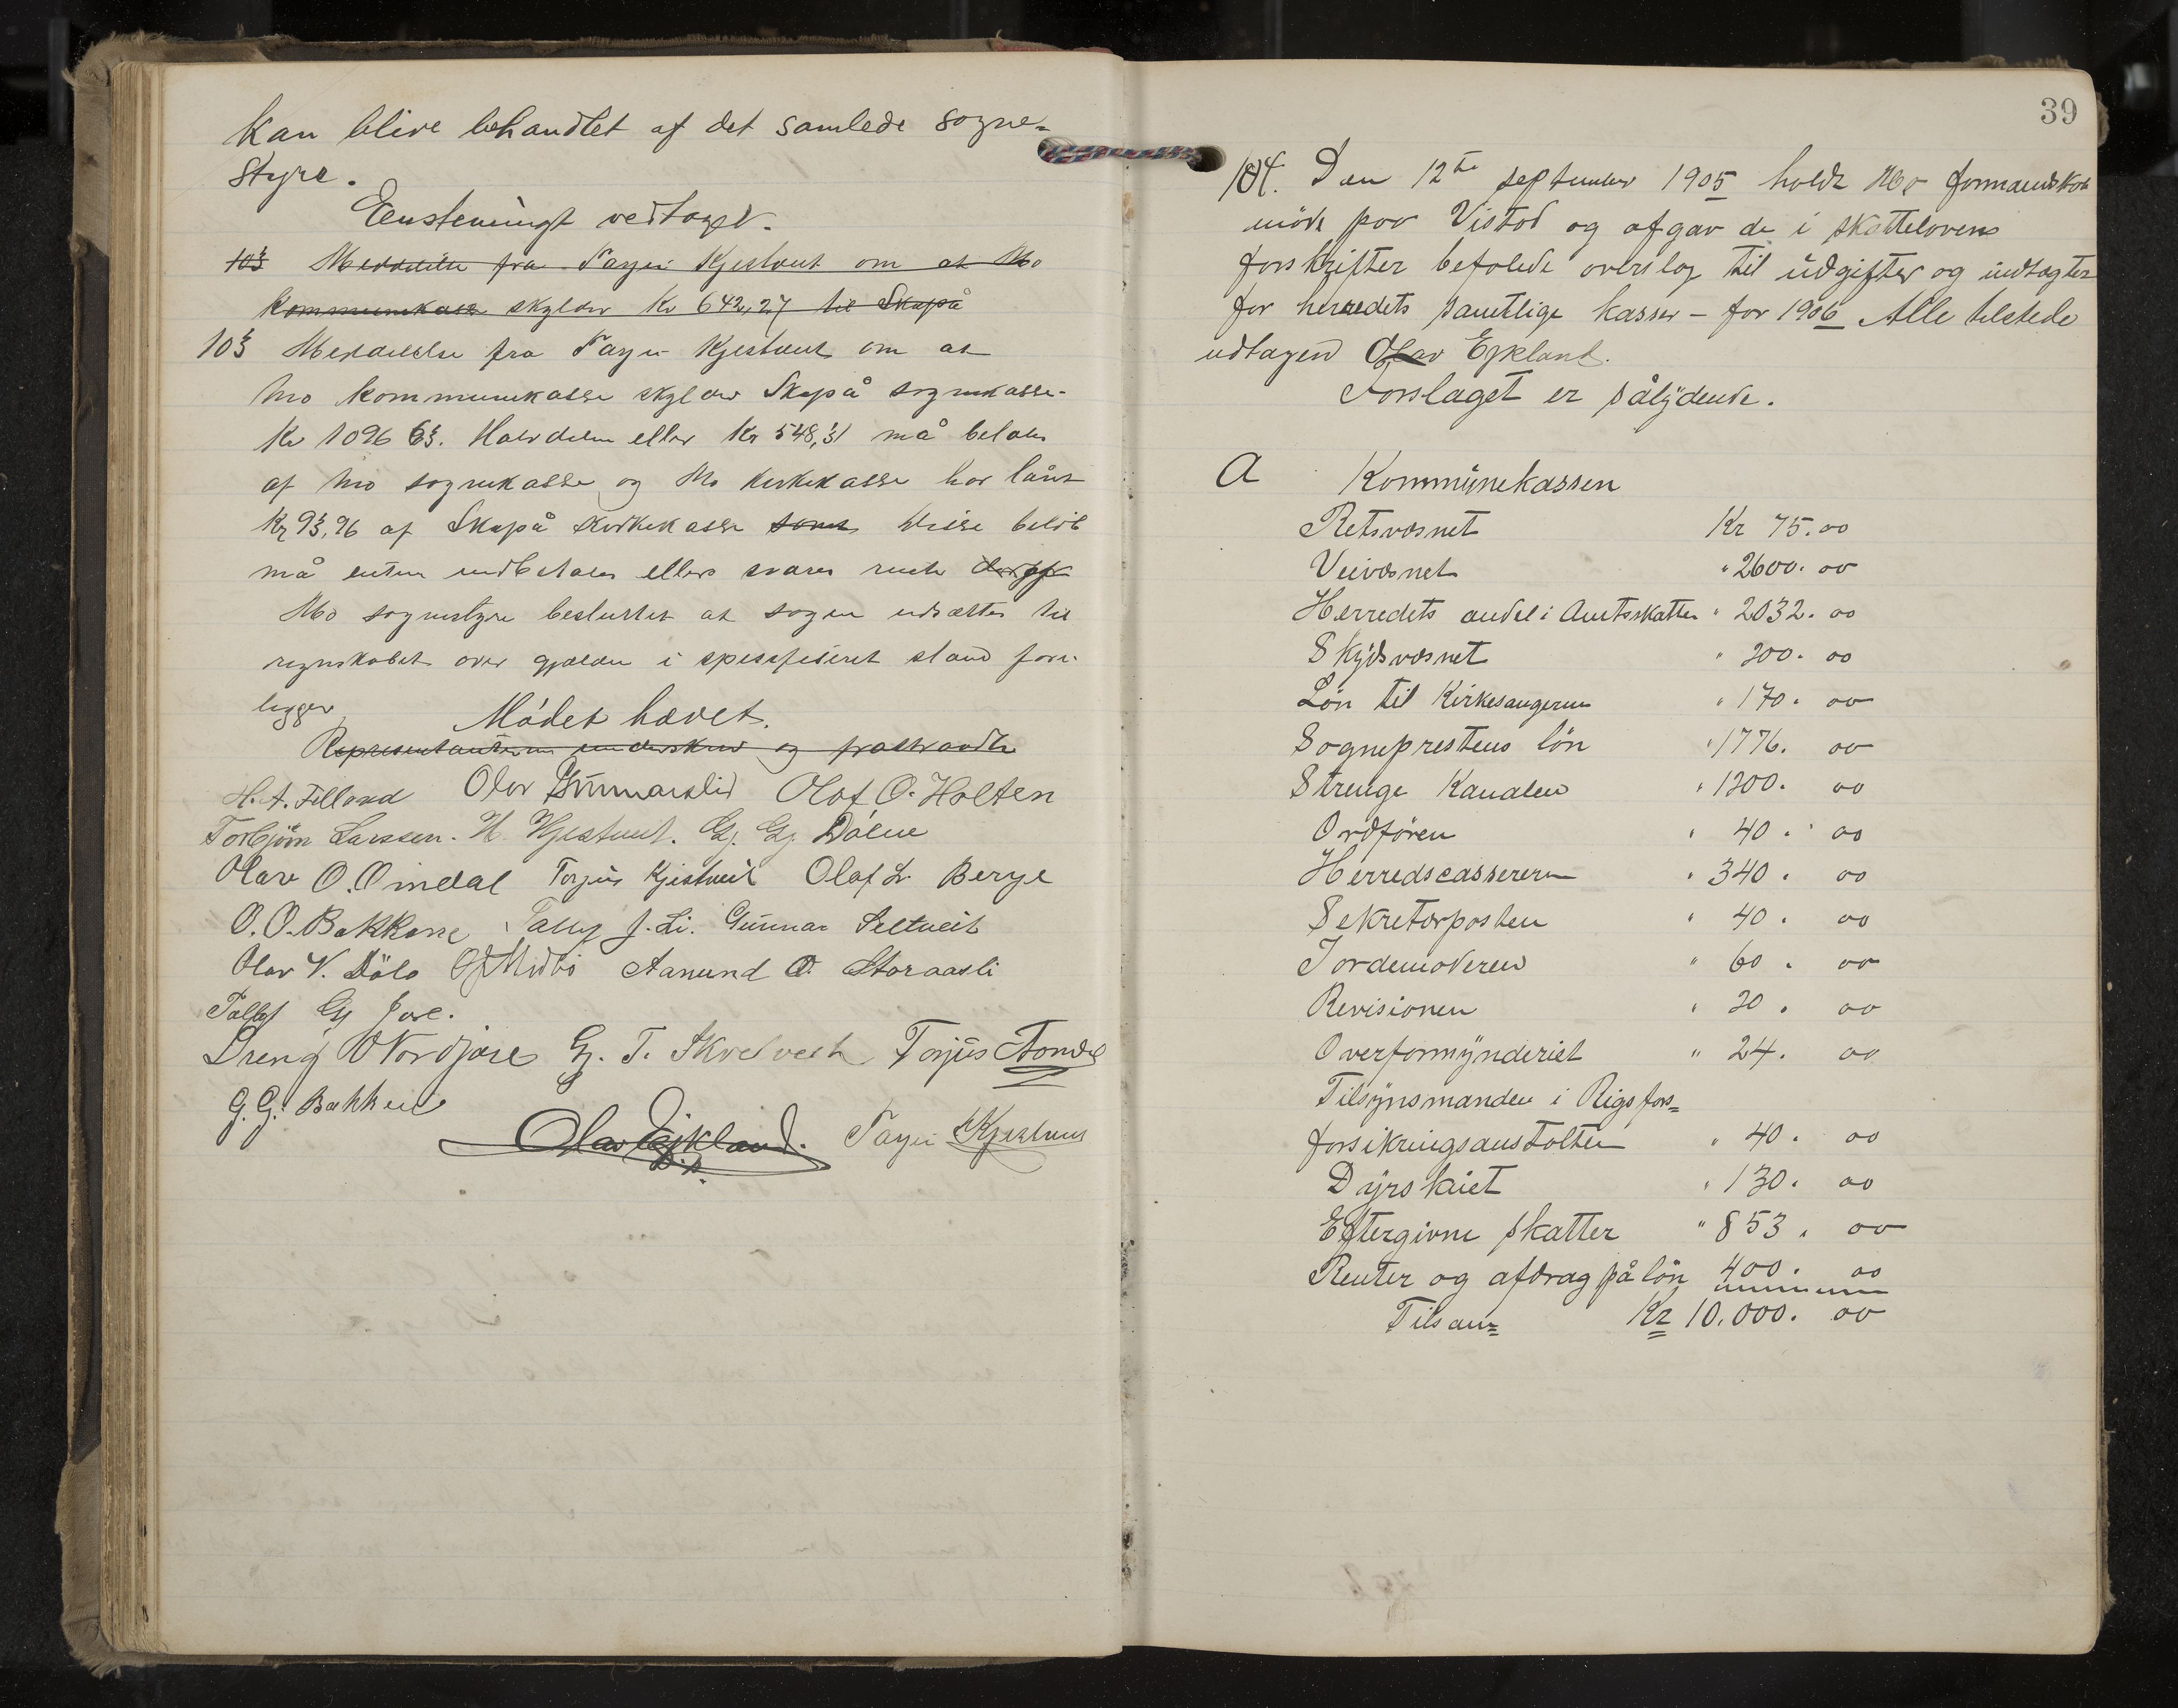 kan blive behandlet af det samlede sogne=
styre.
Eenstemingt vedtaget.
103 Meddelelse fra Tarjei Kjestveit om at Mo
kommunekasse skylder Kr 642,27 til Skapå
103 Meddelelse fra Tarjei Kjestveit om at
Mo kommunekasse skylder Skapå sognekasse
Kr 1096 63. Halvdelen eller Kr 548,31 må betales
af Mo sognekasse og Mo kirkekasse har lånt
Kr 93,96 af Skapå kirkekasse som disse beløb
må enten indbetales ellers svares rente
Mo sognestyre besluttet at sagen udsættes til
regnskabet over gjælden i spesifiseret stand fore-
ligger
Mødet hævet.
Representanterne underskrev og fratraadte
H. A. Felland Olav Gunnarslid Olaf O. Holten
Torbjørn Larssen. H. Kjestveit. Gj. Gj. Dålen
Olav O. Omdal Torjus Kjestveit Olaf L. Berge
O. O. Bakkane Tallef J. Li. Gunnar Seltveit
Olav V. Dölo Aanund O. Storaasli
Tallef Gj Jore.
Dreng O Nordjore Gj. T. Skredveit Torjus Aandal
G. G. Bakken
Olav Ejkland. Tarjei Kjestveit
39
104. Den 12te september 1905 holdt Mo formandskab
møde paa Vistad og afgav de i skattelovens
forskrifter befalede overslag til udgifter og indtægter
for herredets samtlige kasser – for 1906 Alle tilstede
udtagen Olav Ejkland.
Forslaget er pålydende.
A Kommunekassen
Retsvæsnet Kr 75.00
Veivæsnet " 2600.00
Herredets andel i Amtsskatten " 2032.00
Skydsvæsnet " 200.00
Løn til Kirkesangeren " 170.00
Sogneprestens løn " 1776.00
Strenge Kanalen " 1200.00
Ordføren " 40.00
Herredscassereren " 340.00
Sekretærposten " 40.00
Jordemoderen " 60.00
Revisionen " 20.00
Overformynderiet " 24.00
Tilsynsmanden i Rigsfor=
forsikringsanstalten " 40.00
Dyrskuet " 130.00
Eftergivne skatter " 853.00
Renter og afdrag på lån 400.00
Tilsam= Kr 10.000.00